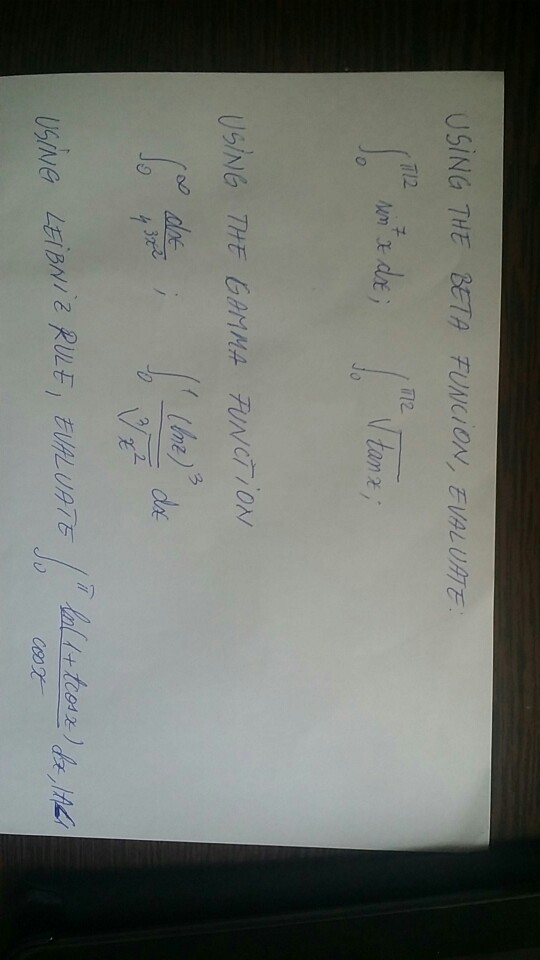 USING THE BETA FUNCION, EVALUATE:
∫₀^π/2 sin⁷x dx; ∫₀^π/2 √tanx;
USING THE GAMMA FUNCTION
∫₀^∞ dx/4^3x²; ∫₀^1 (lnx)³/∛x² dx
USING LEIBNIZ RULE, EVALUATE ∫₀^π ln(1+tcosx)/cosx dx, |t|<1